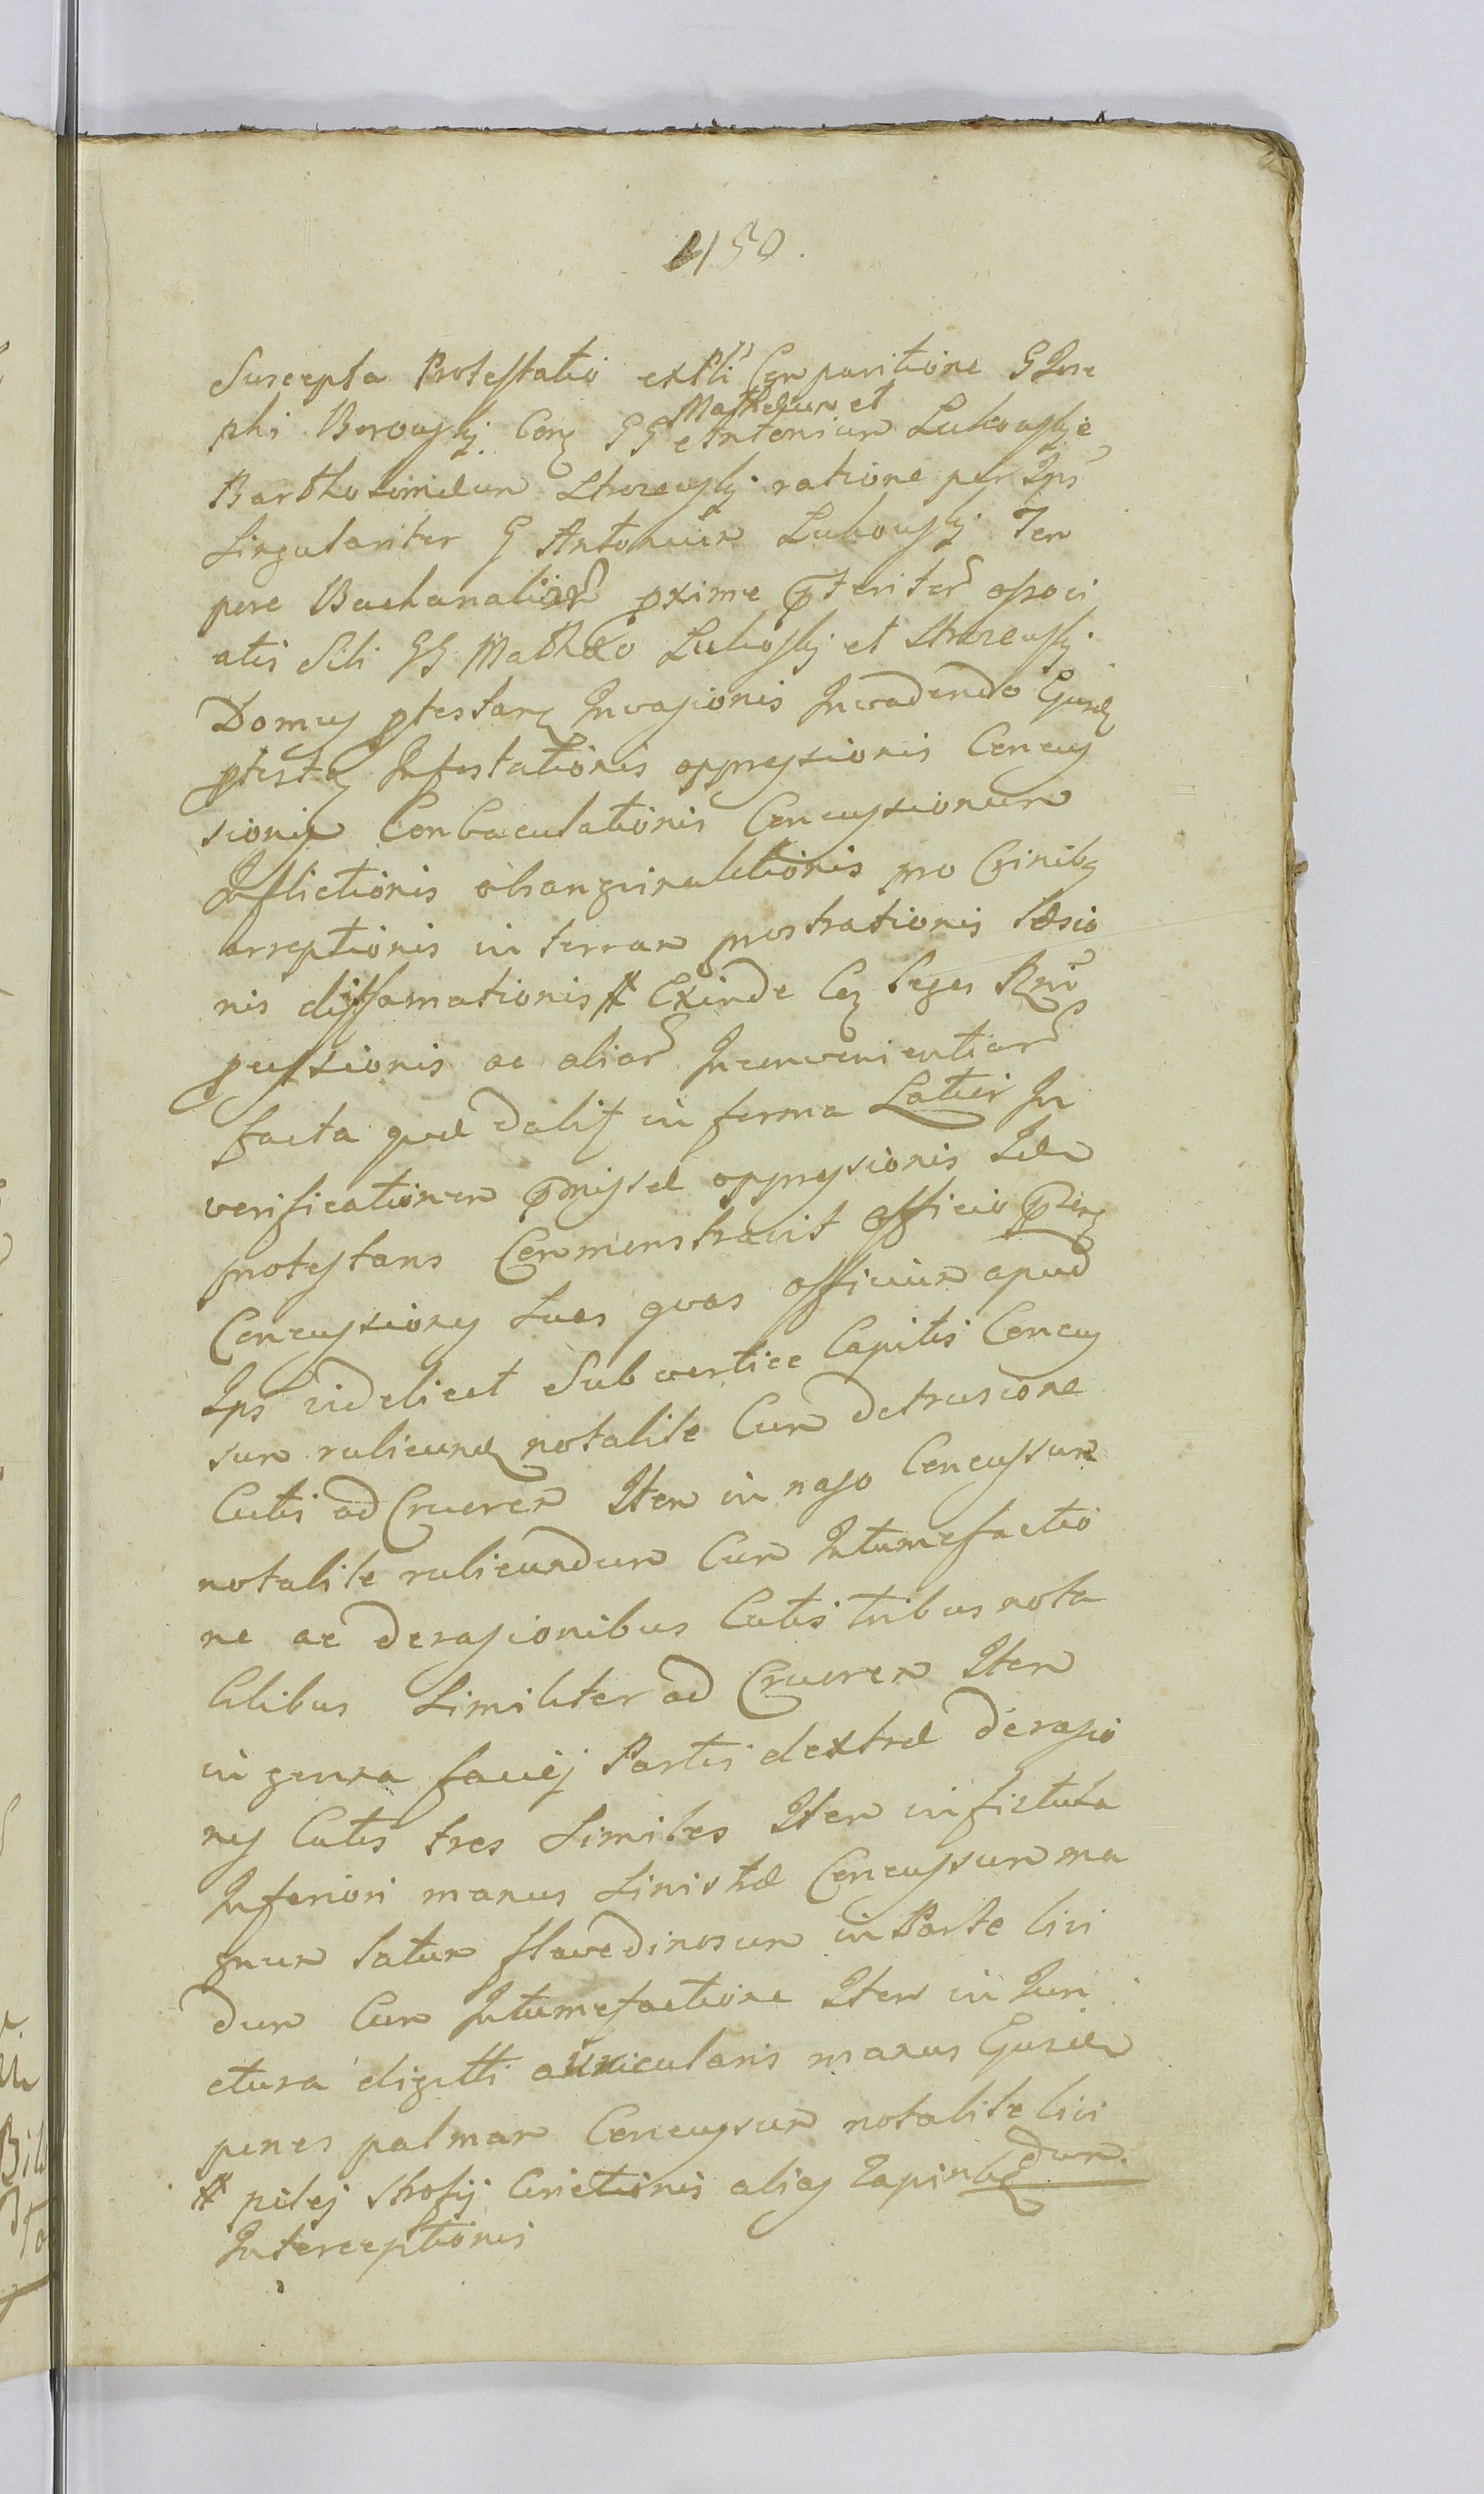 1150.
Suscepta Protestatio ex Psli Comparitione G Jose
phi Borowskj Con GG Antonium Lukowskje
Mathæum et
Bartholomæum ratione per Ips
Singulariter G Antonium Lubowskj Tem
pore Bachanalior pxime pteritor associ
atis Sibi GG Mathæo Luboskj et
Domus ptestan Invasionis Invadendo Ejusd
ptestan Infestationis oppressionis Concus
sionis Conbaculationis Concussionum
Inflictionis obsanguinalitionis pro Crinibq
arreptionis in terram prostrationis læsio
nis diffamationis # Exinde Coz leges Rni
pcussionis ac alior Inconvenientiar
facta quæ dabit in forma Latior In
verificationem pmissæ oppressionis Idem
protestans Conmonstravit officio pnz
Concussiones suas quas officium apud
Ips videlicet Sub vertice Capitis Concus
sum rubicund notabile Cum detrusione
Cutis ad Cruorem Item in naso Concussum
notabile rubicundum Cum Intumefactio
ne ac derasionibus Cutis tribus nota
bilibus Similiter ad Cruorem Item
in genua faciej Partis dextræ derasio
nes Cutis tres Similes Item in fistula
Inferiori manus Sinistræ Concussum ma
gnum latum flavedinosum in Parte livi
dum Cum Intumefactione Item in Jun
ctura digitti auricularis manus Ejusdem
penes palmam Concussum notabile livi
dum.
# pilej Cinctionis alias
Interceptionis